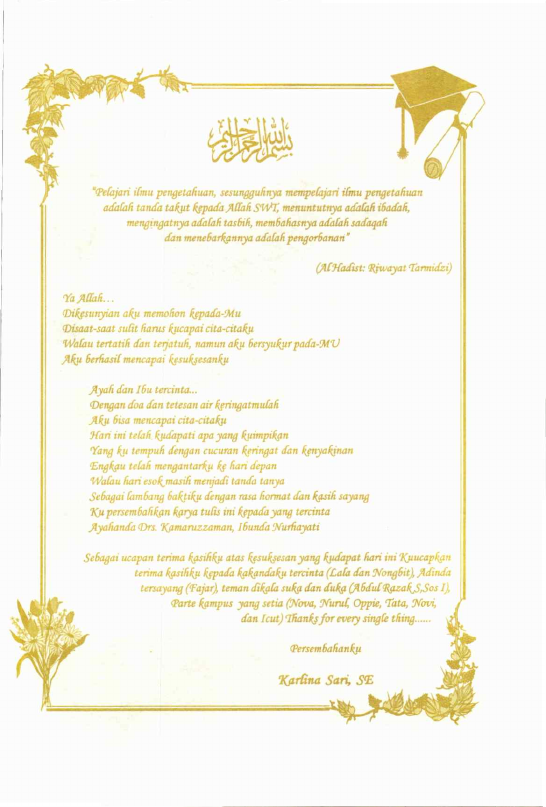 بسم الله الرحمن الرحيم
"Pelajari ilmu pengetahuan, sesungguhnya mempelajari ilmu pengetahuan
adalah tanda takut kepada Allah SWT, menuntutnya adalah ibadah,
mengingatnya adalah tasbih, membahasnya adalah sadaqah
dan menebarkannya adalah pengorbanan"
(Al Hadist: Riwayat Tarmidzi)
Ya Allah...
Dikesunyian aku memohon kepada-Mu
Disaat-saat sulit harus kucapai cita-citaku
Walau tertatih dan terjatuh, namun aku bersyukur pada-MU
Aku berhasil mencapai kesuksesanku
Ayah dan Ibu tercinta...
Dengan doa dan tetesan air keringatmulah
Aku bisa mencapai cita-citaku
Hari ini telah kudapati apa yang kuimpikan
Yang ku tempuh dengan cucuran keringat dan kenyakinan
Engkau telah mengantarku ke hari depan
Walau hari esok masih menjadi tanda tanya
Sebagai lambang baktiku dengan rasa hormat dan kasih sayang
Ku persembahkan karya tulis ini kepada yang tercinta
Ayahanda Drs. Kamaruzzaman, Ibunda Nurhayati
Sebagai ucapan terima kasihku atas kesuksesan yang kudapat hari ini Kuucapkan
terima kasihku kepada kakandaku tercinta (Lala dan Nongbit), Adinda
tersayang (Fajar), teman dikala suka dan duka (Abdul Razak S,Sos I),
Parte kampus yang setia (Nova, Nurul, Oppie, Tata, Novi,
dan Icut) Thanks for every single thing......
Persembahanku
Karlina Sari, SE